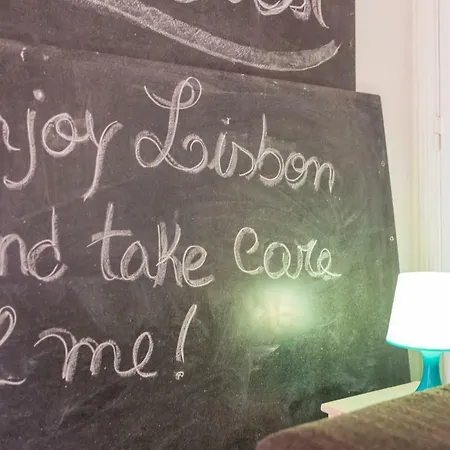 njoy Lisbon
nd take care
me!